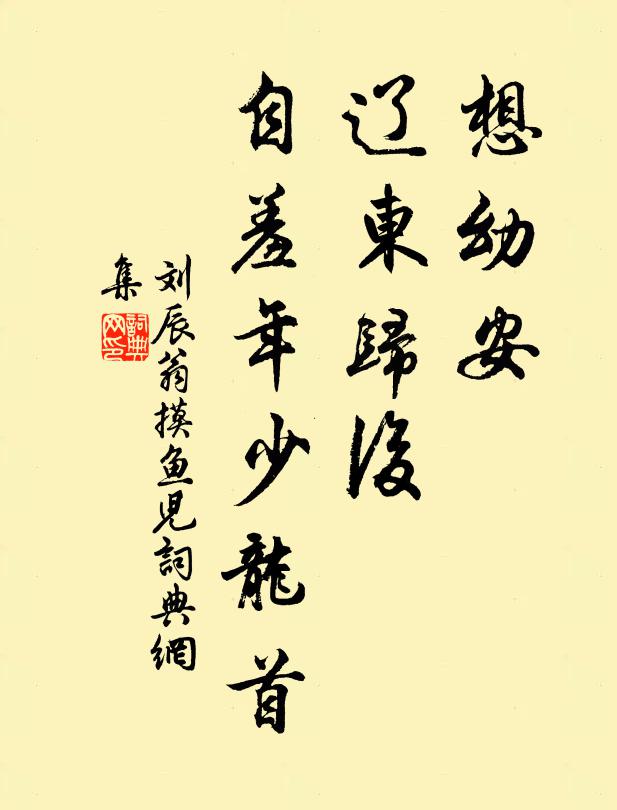 想幼安
辽東歸後
自羞年少龍首
刘辰翁摸鱼児詞典網
集
詞典
网印